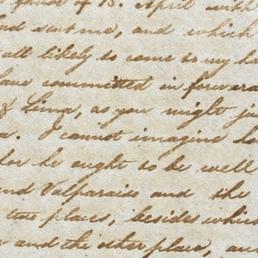 favor of 15. April with
had sent me, and which
all likely to come to my ha
have committed in forwar
of Lima, as you might ju
a. I cannot imagine ho
for he ought to be well
and Valparaiso and the
two places, besides which
and the other place, an